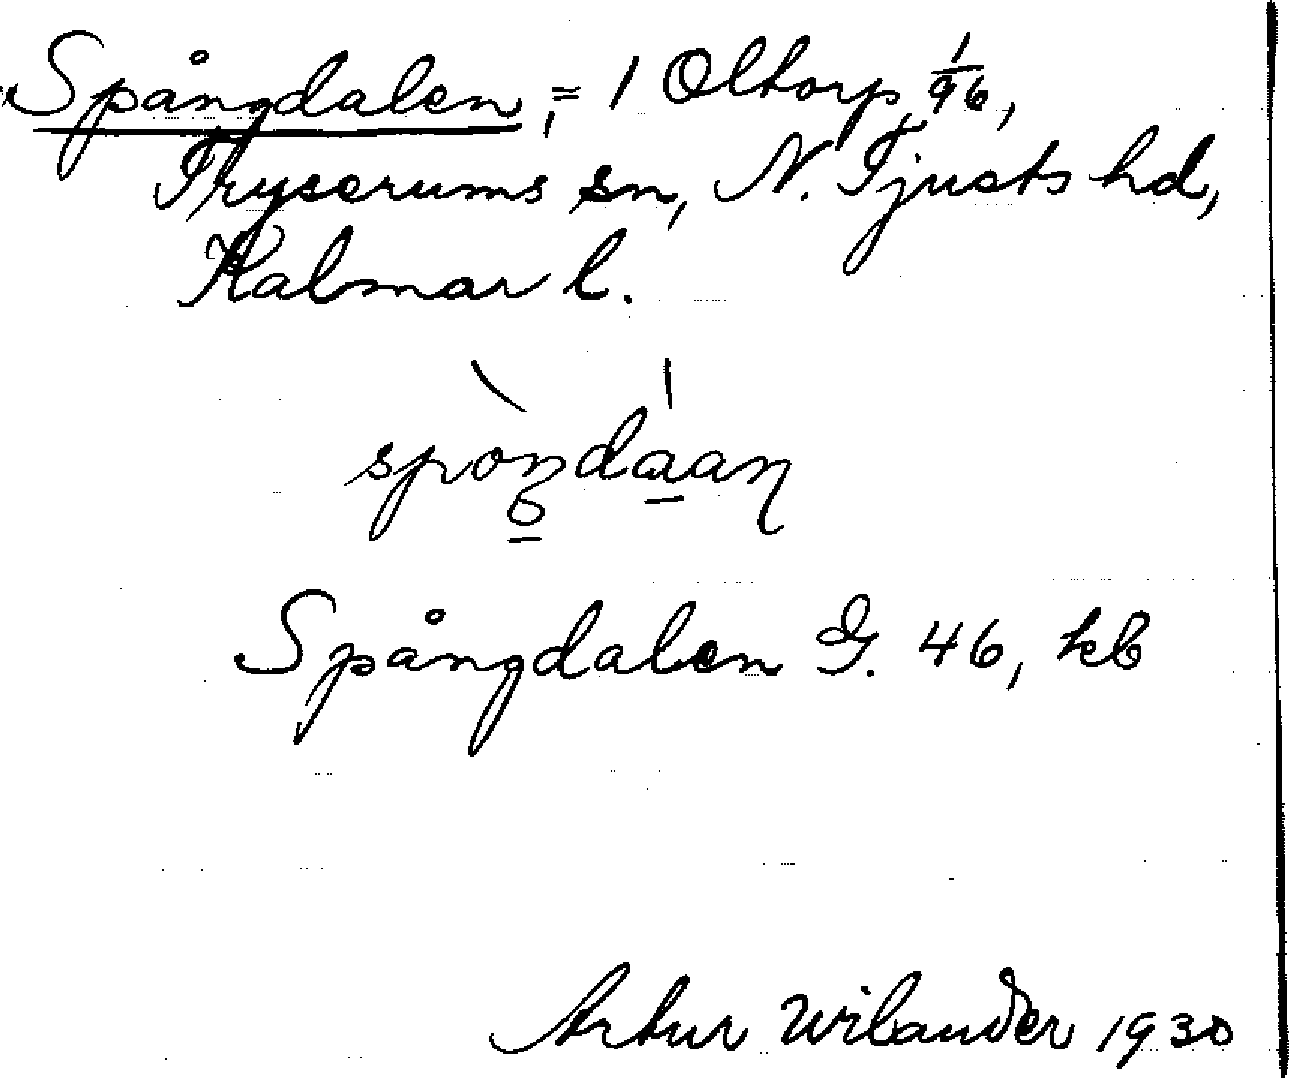 Spångdalen, = 1 Oltorp 1/96,
Tryserums sn, N. Tjusts hd,
Kalmar l.
Spångdalen G. 46, kb
Artur Wilander 1930